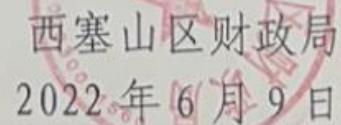 西塞山区财政局
2022年6月9日